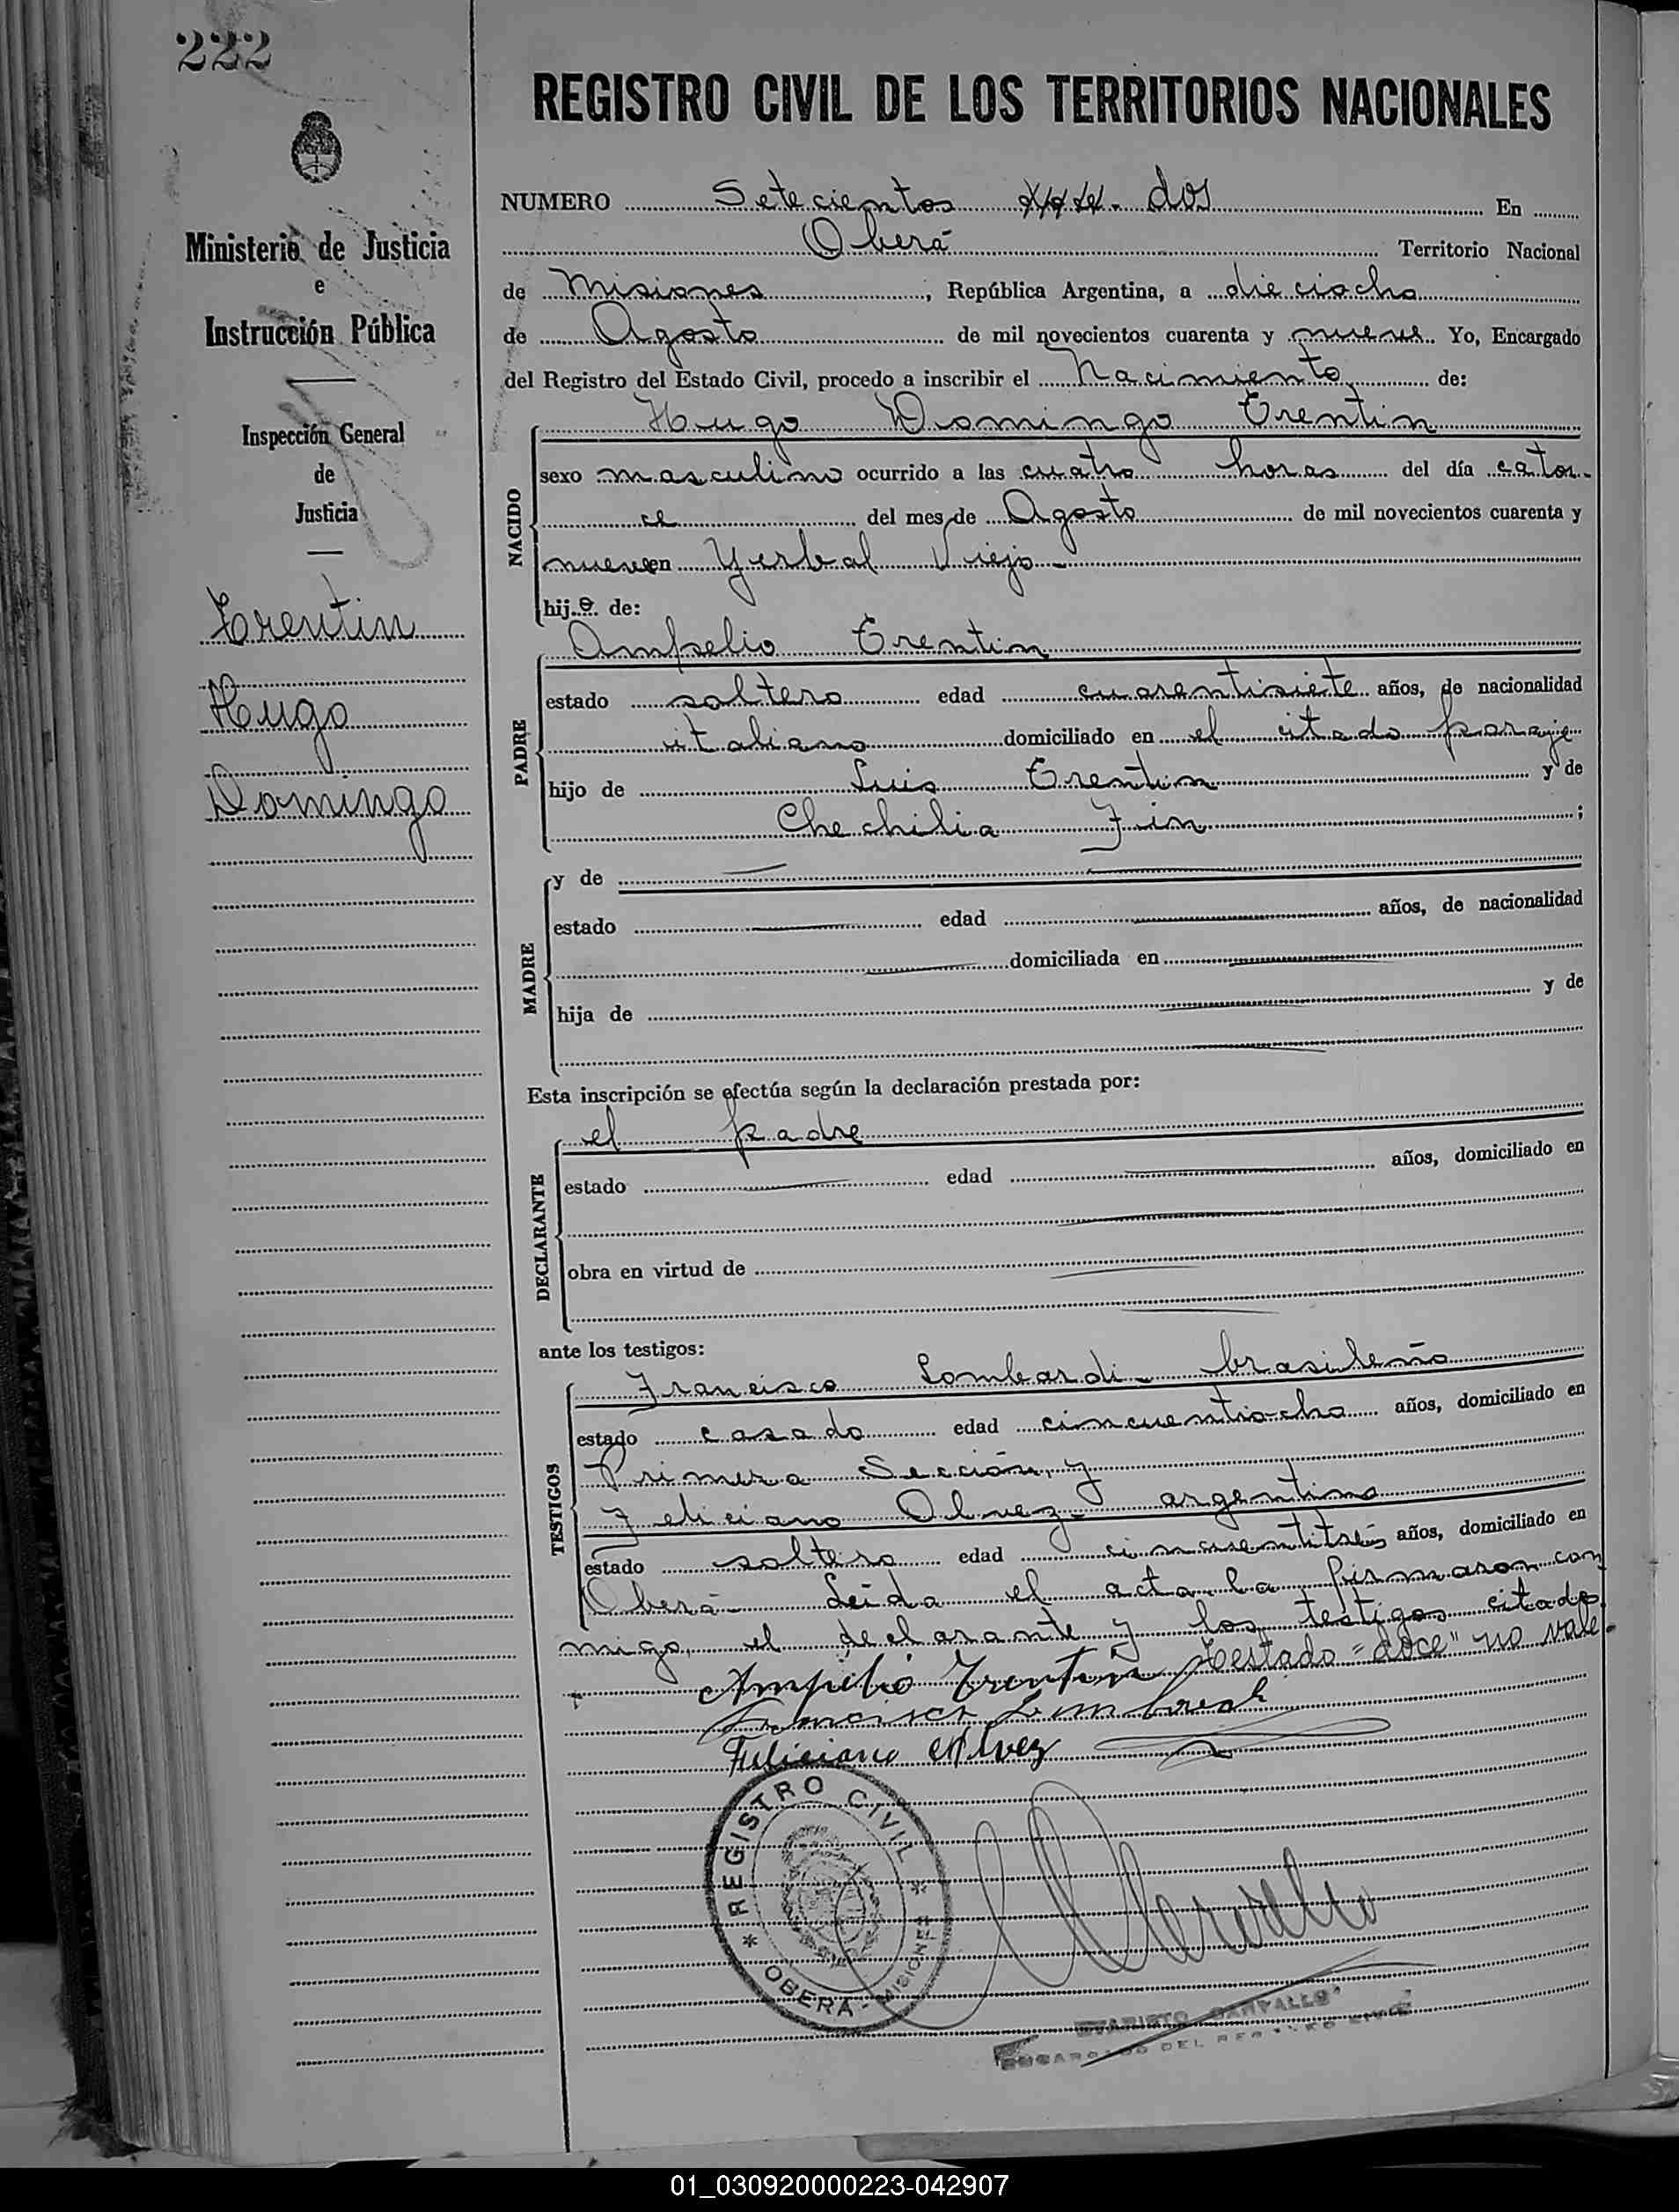 222
REGISTRO CIVIL DE LOS TERRITORIOS NACIONALES
Ministerio de Justicia
e
Instrucción Pública
Inspección General
de
Justicia
Trentin
Hugo
Domingo
NUMERO Setecientos dos En
Oberá Territorio Nacional
de Misiones, República Argentina, a dieciocho
de Agosto de mil novecientos cuarenta y nueve. Yo, Encargado
del Registro del Estado Civil, procedo a inscribir el Nacimiento de:
NACIDO
Hugo Domingo Trentin
sexo masculino ocurrido a las cuatro horas del día cator-
ce del mes de Agosto de mil novecientos cuarenta y
nueve en Yerbal Viejo-
hijo de:
PADRE
Ampelio Trentin
estado soltero edad cuarentisiete años, de nacionalidad
italiano domiciliado en el citado paraje
hijo de Luis Trentin y de
Chechilia Fin;
MADRE
y de
estado edad años, de nacionalidad
domiciliada en
hija de y de
Esta inscripción se efectúa según la declaración prestada por:
DECLARANTE
el padre
estado edad años, domiciliado en
obra en virtud de
ante los testigos:
TESTIGOS
Francisco Lombardi- brasileño
estado casado edad cincuentiocho años, domiciliado en
Primera Sección, y
Feliciano Olvez- argentino
estado soltero edad cincuentitrés años, domiciliado en
Oberá- Leída el acta la firmaron con
migo, el declarante y los testigos citados
Testado "doce" no vale-
Ampelio Trentin
Feliciano
REGISTRO CIVIL
OBERÁ - MISIONES
EVARISTO CARVALLO
ENCARGADO DEL REGISTRO CIVIL
01_030920000223-042907